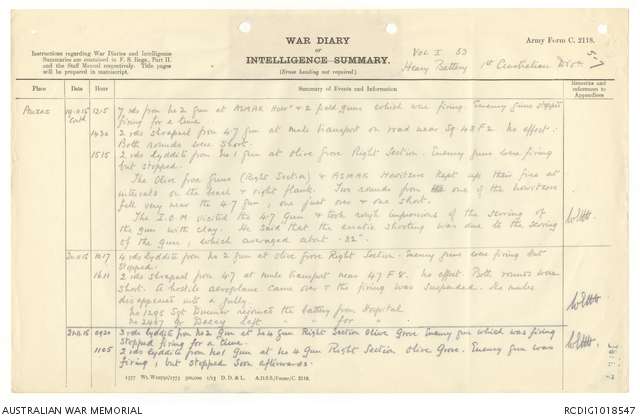 WAR DIARY
or
INTELLIGENCE SUMMARY.
(Erase heading not required)
Army Form C. 2118.
Instructions regarding War Diaries and Intelligence
Summaries are contained in F. S. Regs., Part II.
and the Staff Manual respectively. Title pages
will be prepared in manuscript.
Vol I 53
Heavy Battery 1st Australian Div
Place Date Hour Summary of Events and Information Remarks and references to Appendices
ANZAC 1215 7 rds from No 2 gun at ASMAK How & 2 field guns which were firing. Enemy guns stopped
firing for a time.
1430 2 rds shrapnel from 4.7 gun at mule transport on road near Sq. 43 F 2. No effect.
Both rounds were short.
1515 2 rds lyddite from No 1 gun at olive grove Right Section. Enemy guns were firing
but stopped.
The Olive Grove Guns (Right Section) & ASMAK Howitzers kept up their fire at
intervals on the beach & right flank. Two rounds from one of the howitzers
fell very near the 4.7 gun, one just over & one short.
The I.O.M visited the 4.7 Gun & took rough impressions of the scoring of
the gun with clay. He said that the erratic shooting was due to the scoring
of the gun, which averaged about .22".
4 rds lyddite from No 2 gun at olive Grove Right Section. Enemy guns were firing but
stopped.
1611 2 rds shrapnel from 4.7 at mule transport near 47 F 8. No effect. Both rounds were
short. A hostile aeroplane came over & the firing was suspended. The mules
disappeared into a gully.
No 1295 Sgt rejoined the battery from Hospital
No 2467 Gr left " " for "
0920 3 rds lyddite from No 2 Gun at No 4 gun Right Section Olive Grove. Enemy gun which was firing
stopped firing for a time.
1105 2 rds lyddite from No 1 Gun at No 4 Gun Right Section Olive Grove. Enemy gun was
firing, but stopped soon afterwards.
D. D. & L. A.D.S.S./Forms/C. 2118.
AUSTRALIAN WAR MEMORIAL
RCDIG1018547